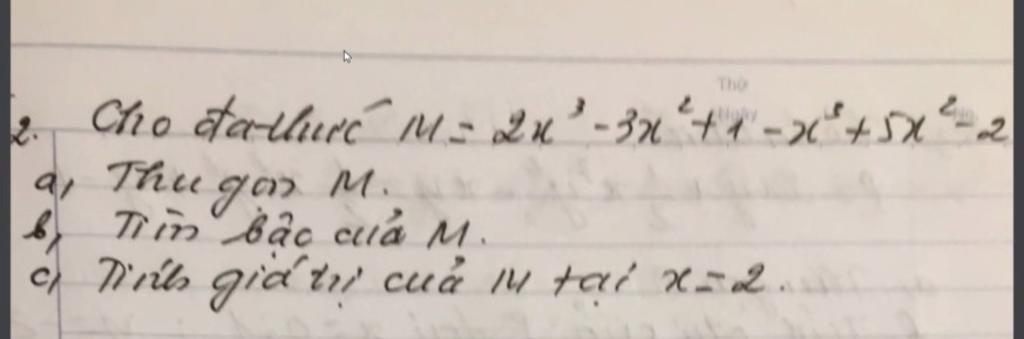 2. Cho đa thức M = 2x³ - 3x² + 1 - x³ + 5x² - 2
a, Thu gọn M.
b, Tìm bậc của M.
c, Tính giá trị của M tại x = 2.